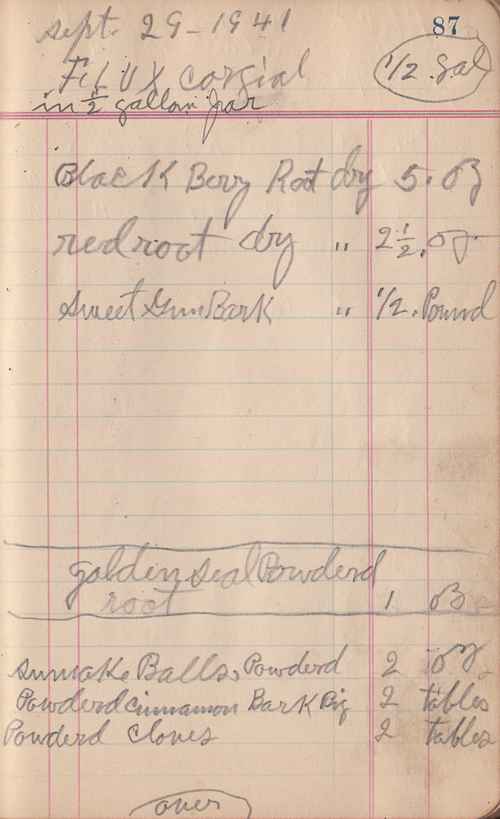 sept. 29-1941
87
FiLUX corgial
1/2 gal
in 1/2 gallon jar
Black Bery Root dry 5. oz
red root dry " 2 1/2. oz.
Sweet Gum Bark " 1/2. Pound
golden seal Powderd
root 1 oz
sumake Balls, Powderd 2 oz.
Powderd cinnamon Bark Big 2 tables
Powderd Cloves 2 tables
over